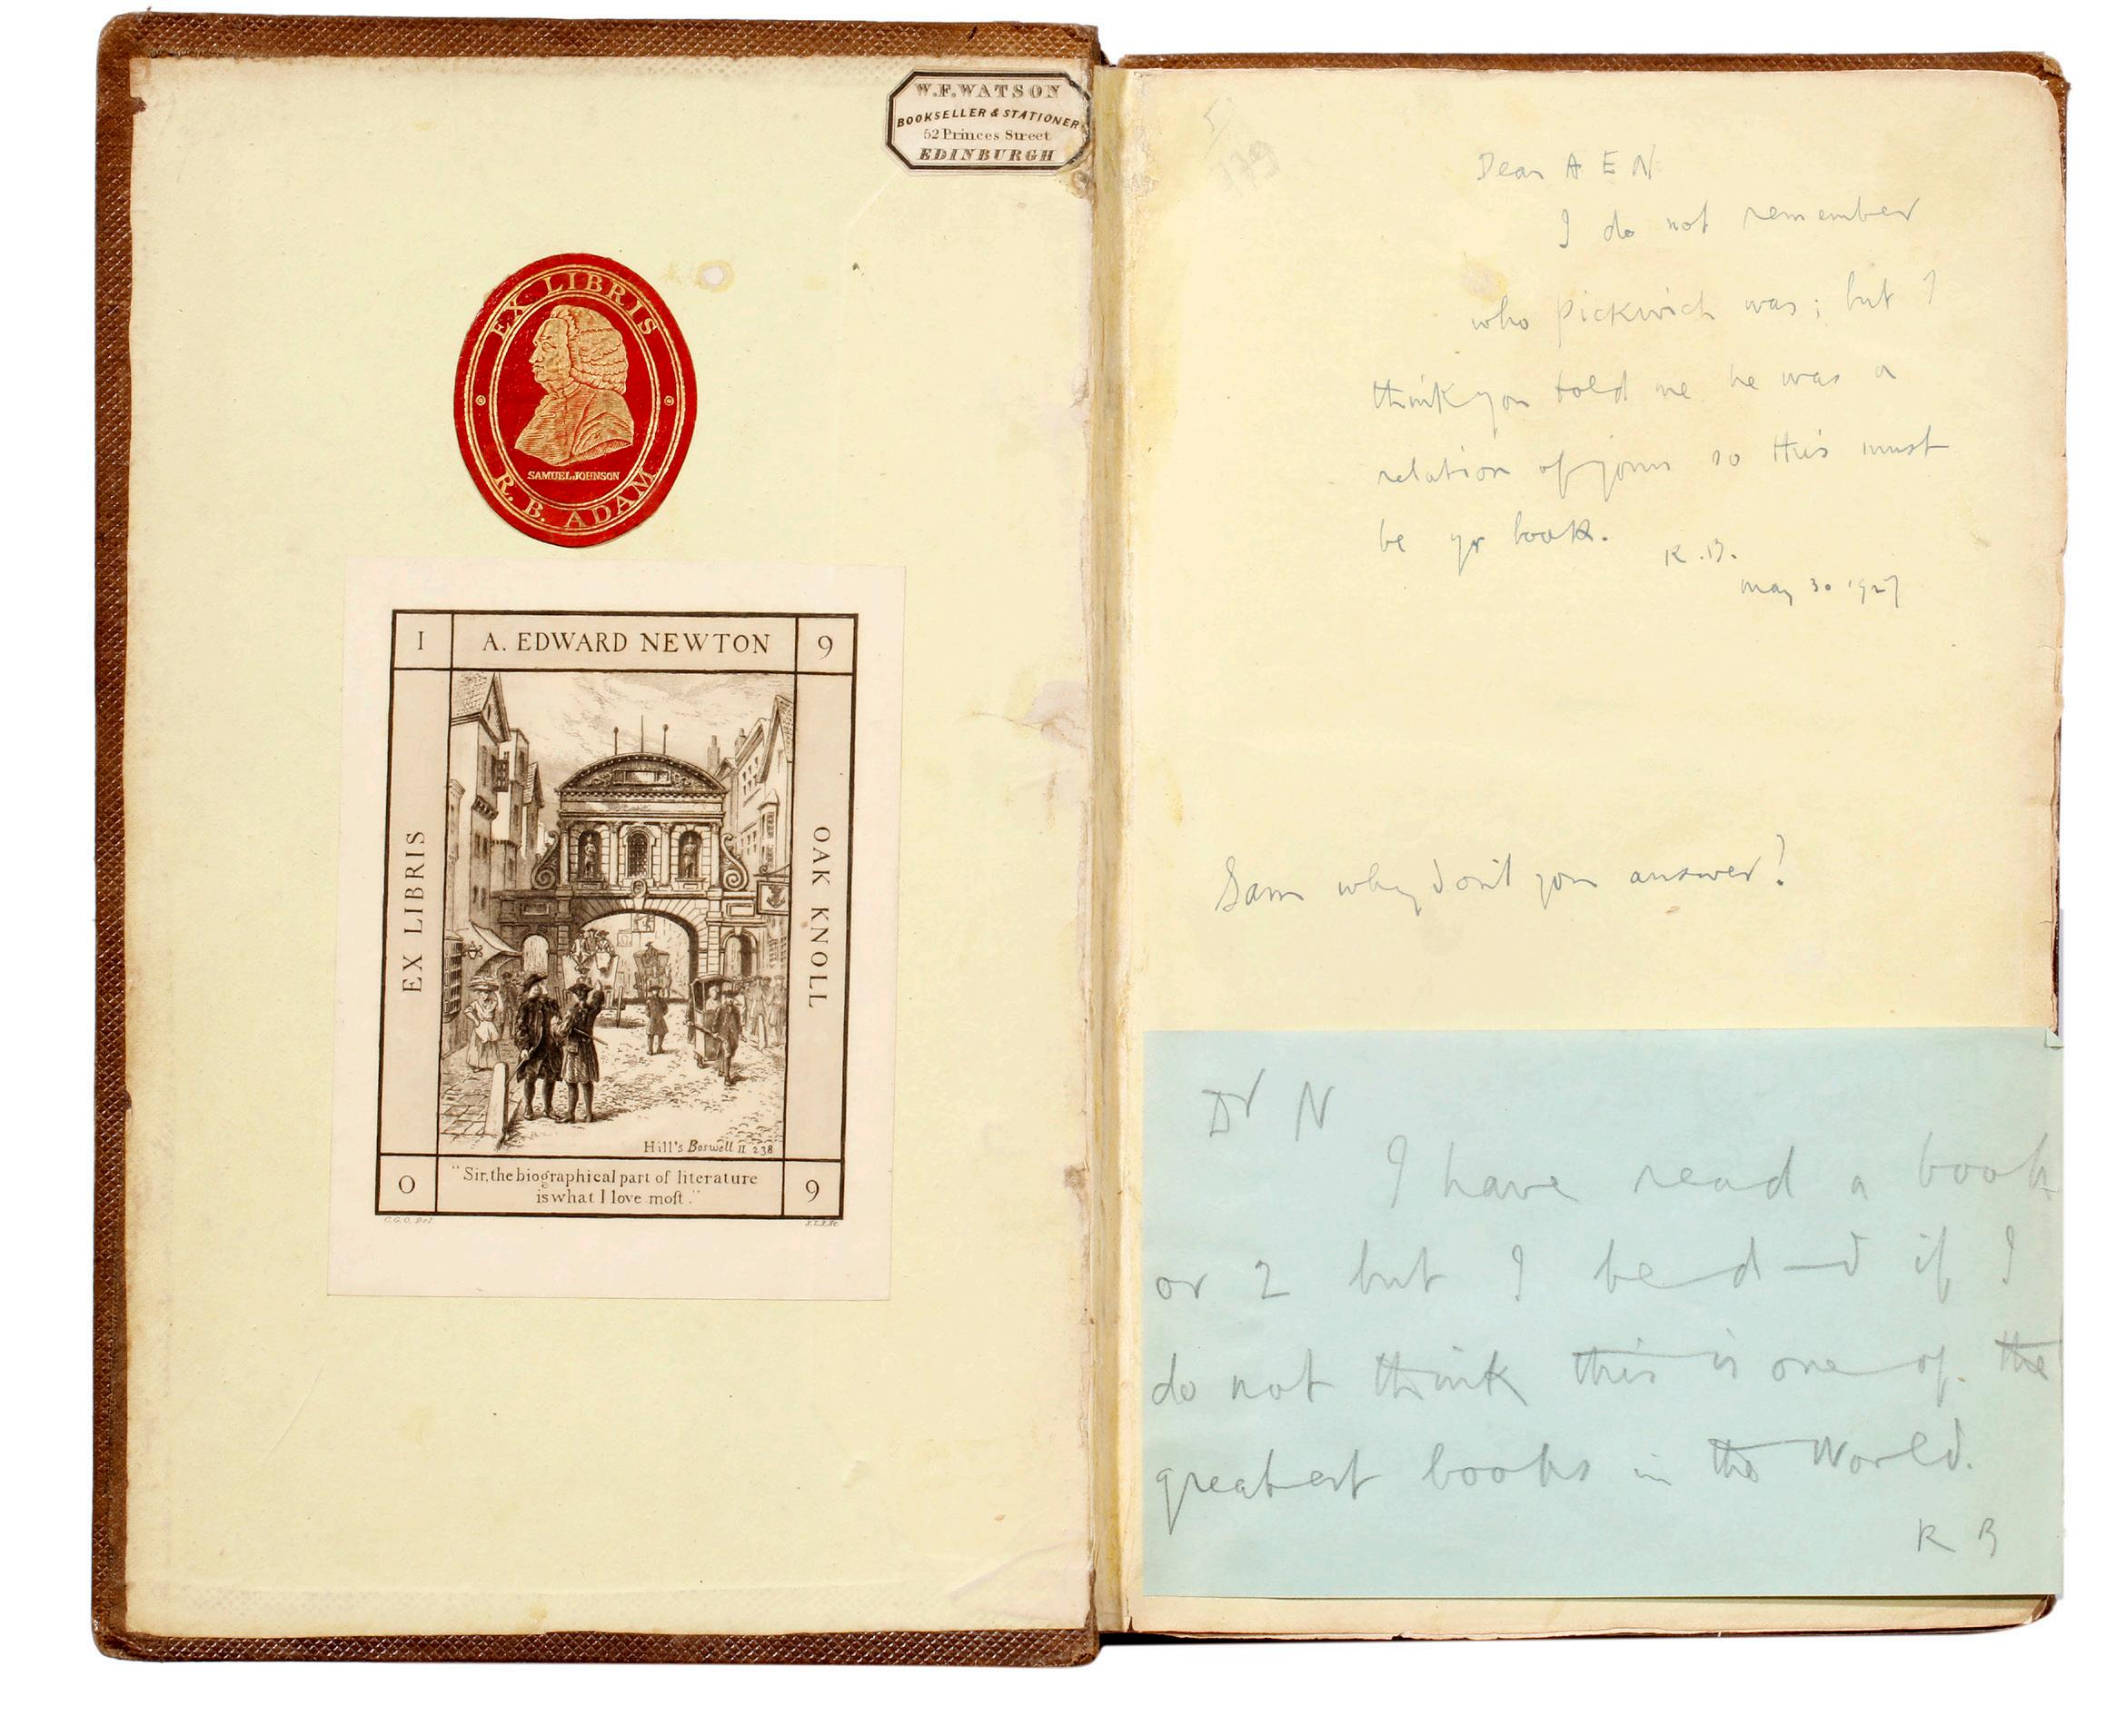 W.F.WATSON
BOOKSELLER & STATIONER
52 Princes Street
EDINBURGH
EX LIBRIS
SAMUEL JOHNSON
R. B. ADAM
I A. EDWARD NEWTON 9
EX LIBRIS
OAK KNOLL
Hill's Boswell II 238
O "Sir, the biographical part of literature 9
is what I love most."
C.G.O. Del.
179
Dear A E N
I do not remember
who Pickwick was; but I
think you told me he was a
relation of yours so this must
be yr book.
R.B.
May 30 1927
Sam why don't you answer?
Dr N
I have read a book
or 2 but I be d—d if I
do not think this is one of the
greatest books in the World.
R B